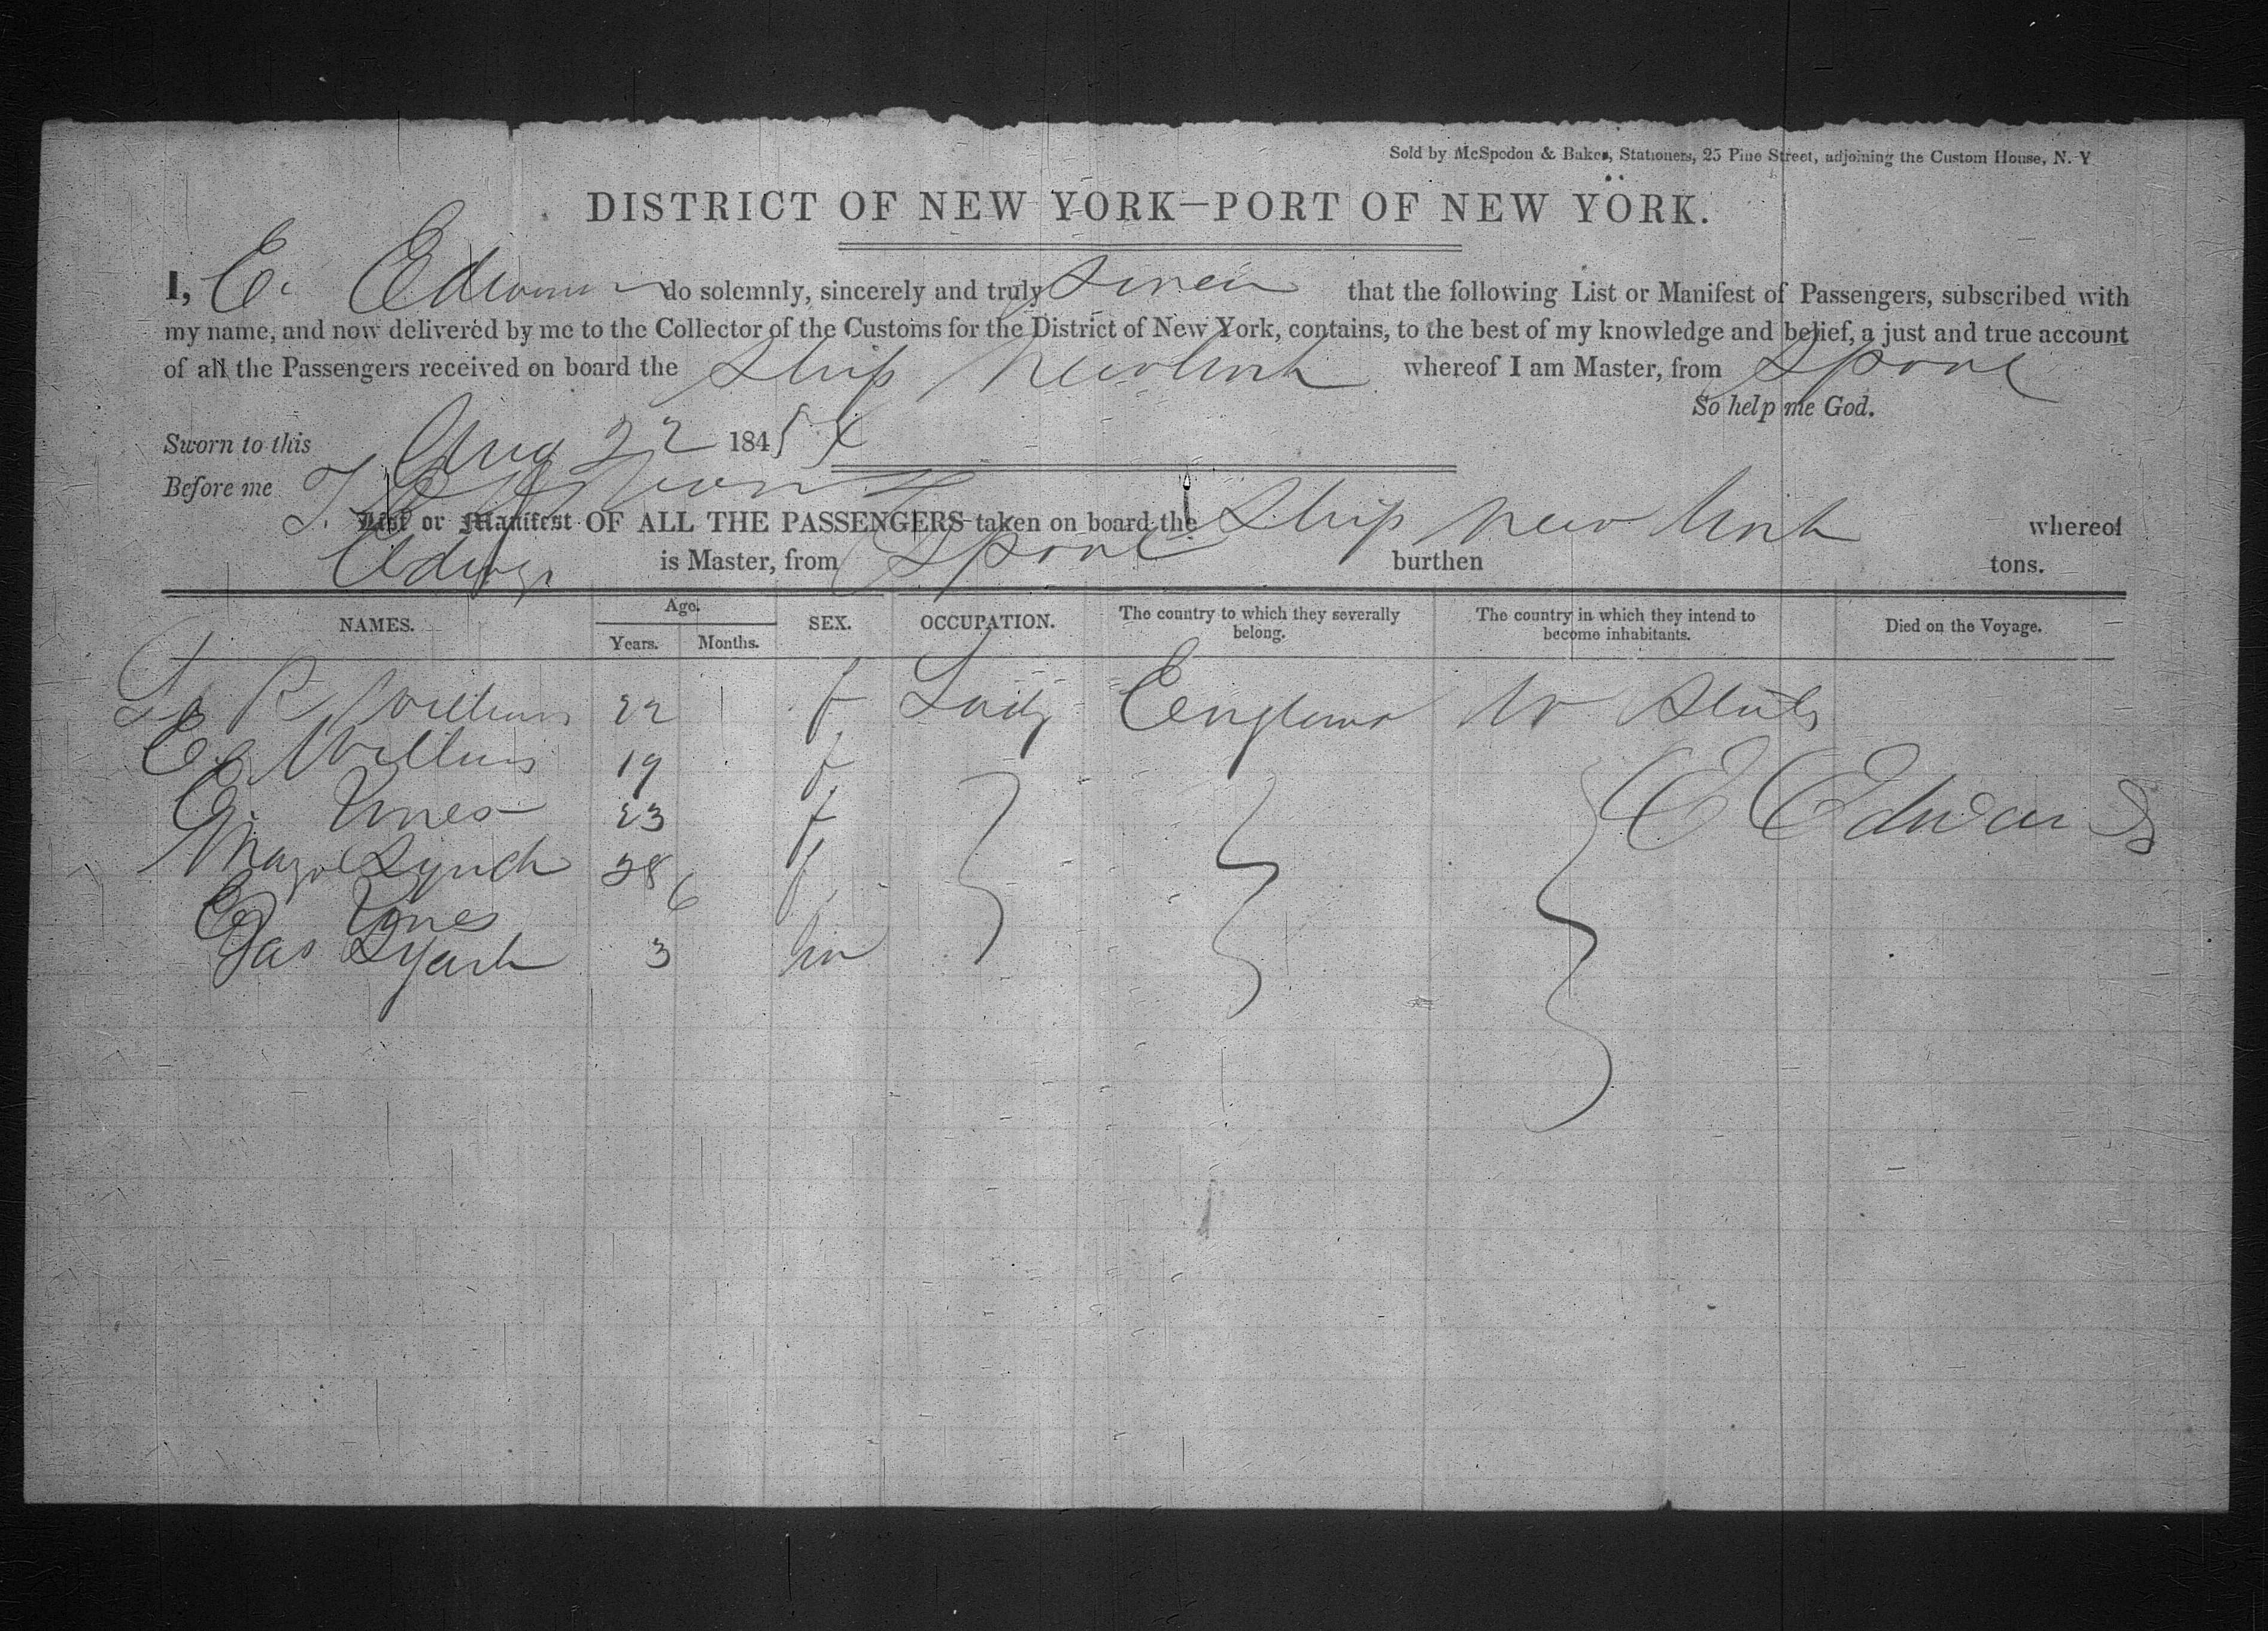 Sold by McSpedon & Baker, Stationers, 25 Pine Street, adjoining the Custom House, N. Y
DISTRICT OF NEW YORK—PORT OF NEW YORK.
I, E. Edwards do solemnly, sincerely and truly swear that the following List or Manifest of Passengers, subscribed with
my name, and now delivered by me to the Collector of the Customs for the District of New York, contains, to the best of my knowledge and belief, a just and true account
of all the Passengers received on board the Ship New York whereof I am Master, from Lpool
So help me God.
Sworn to this Aug 22 184
Before me
List or Manifest OF ALL THE PASSENGERS taken on board the Ship New York whereof
is Master, from Lpool burthen tons.
NAMES. Age. SEX. OCCUPATION. The country to which they severally belong. The country in which they intend to become inhabitants. Died on the Voyage.
Years. Months.
R Williams 22 f Lady England U States
E Williams 19 f
E. Jones 23 f E Edwards
Lynch 28 f
E Jones 6
Jas Lynch 3 m